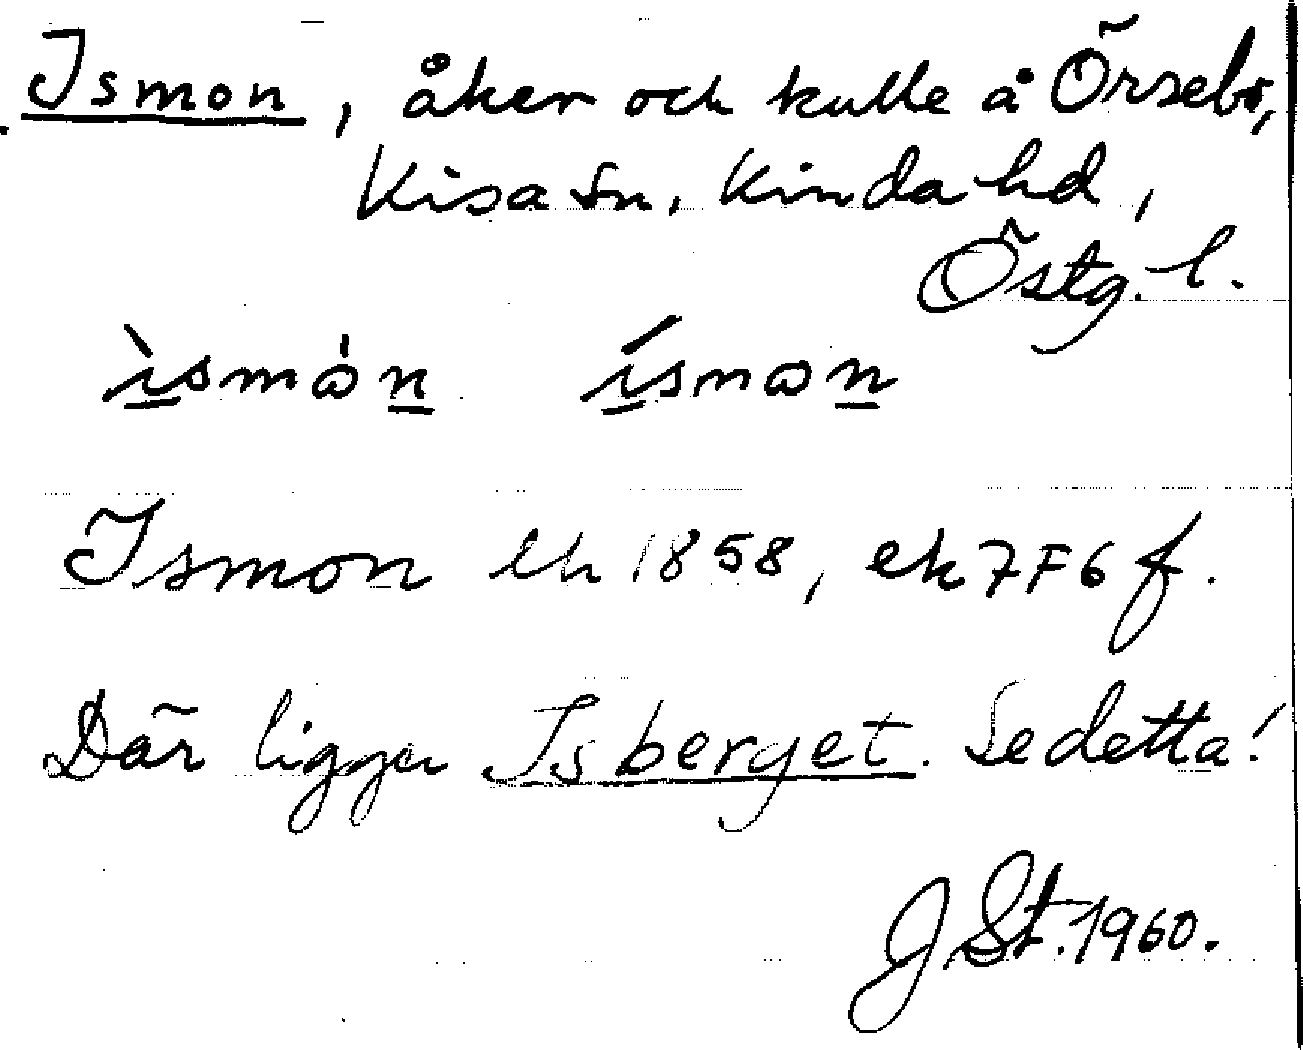 Ismon, åker och kulle å Örsebo,
Kisa sn, Kinda hd,
Östg. l.
ìsmòn ísmon
Ismon lh 1858, ek 7F6f.
Där ligger Isberget. Se detta!
J St. 1960.